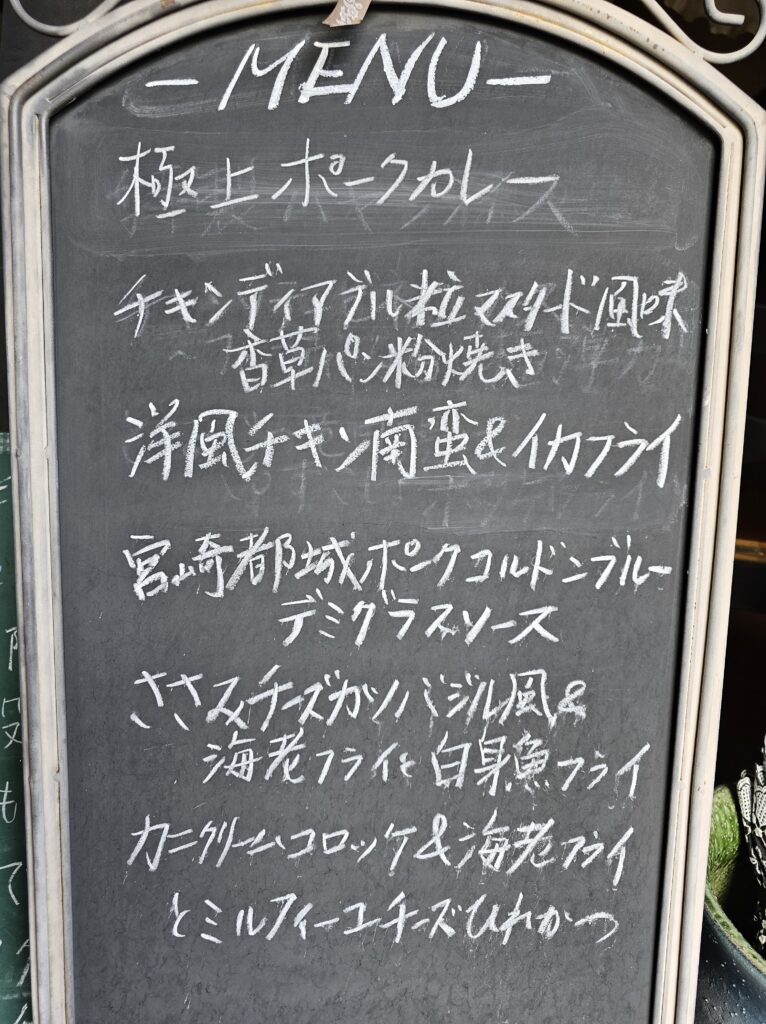 - MENU -
極上ポークカレー
チキンディアブル粒マスタード風味
香草パン粉焼き
洋風チキン南蛮&イカフライ
宮崎都城ポークコルドンブルー
デミグラスソース
ささみチーズカツバジル風&
海老フライと白身魚フライ
カニクリームコロッケ&海老フライ
とミルフィーユチーズひれかつ